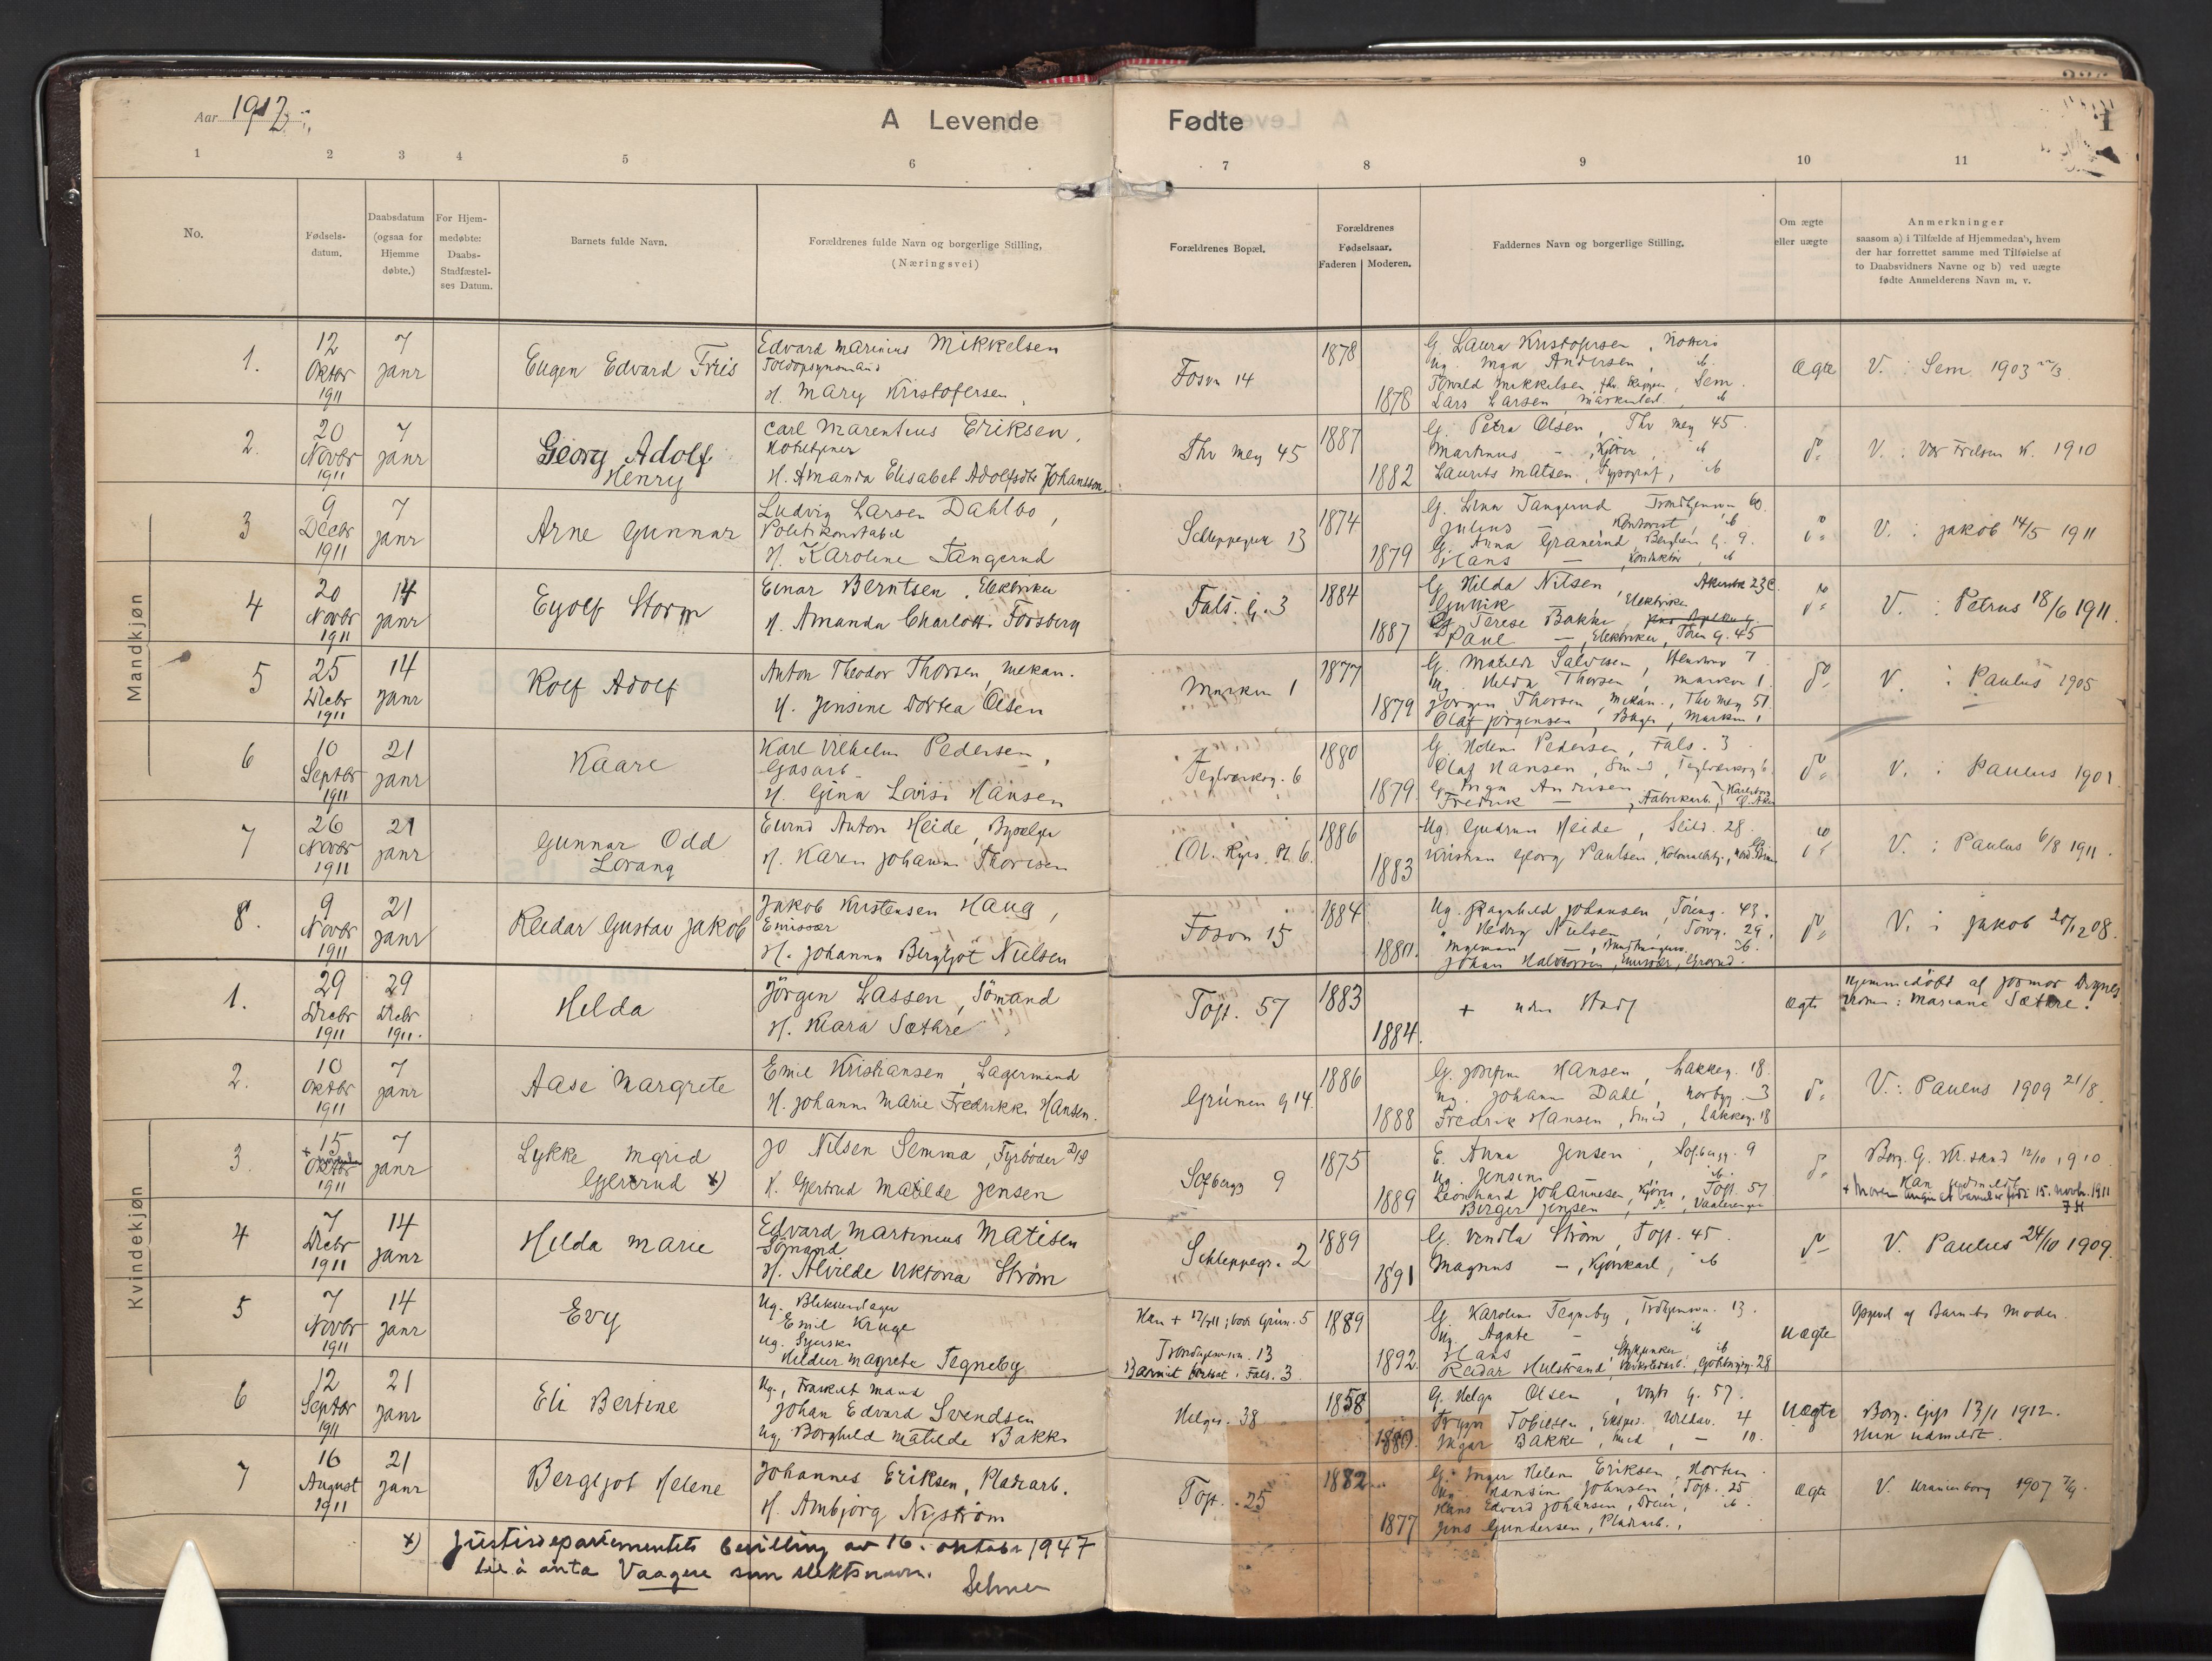 Aar 1912
A Levende Fødte
1 2 3 4 5 6 7 8 9 10 11
No.
Fødsels-
datum.
Daabsdatum
(ogsaa for
Hjemme
døbte.)
For Hjem-
medøbte:
Daabs-
Stadfæstel-
ses Datum.
Barnets fulde Navn.
Forældrenes fulde Navn og borgerlige Stilling,
(Næringsvei)
Forældrenes Bopæl.
Forældrenes
Fødselsaar.
Faderen Moderen.
Faddernes Navn og borgerlige Stilling.
Om ægte
eller uægte
Anmerkninger
saasom a) i Tilfælde af Hjemmedaab, hvem
der har forrettet samme med Tilføielse af
to Daabsvidners Navne og b) ved uægte
fødte Anmelderens Navn m. v.
Mandkjøn
1.
12
Oktbr
1911
7
janr
Eugen Edvard Friis
Edvard Marinius Mikkelsen
H. Mary Kristofersen
Fosvn 14
1878
1878
G. Laura Kristofersen, Nøtterø
Ug. Inga Andersen, ib.
Lars Larsen
Ægte
V. : Sem. 1903
2.
20
Novbr
1911
7
janr
Georg Adolf
Henry
Carl Marentius Eriksen,
H. Amanda Elisabet Adolfsdtr Johansson
Thv mey 45
1887
1882
G. Petra Olsen, Thv mey 45
Martinus —, Kjører, ib
Laurits Matsen, Typograf, ib
do
V. : Vor Frelsers K. 1910
3
9
Decbr
1911
7
janr
Arne Gunnar
Ludvig Larsen Dahlbo,
Politikonstabel
H. Karoline Tangerud
Schleppegrn 13
1874
1879
G. Lina Tangerud
Julius — Kontorist, ib
G. Anna Granerud
Hans — ib
do
V. : Jakob 14/5 1911
4
20
Novbr
1911
14
janr
Eyolf Storm
Einar Berntsen, Elektriker
H. Amanda Charlotte Forsberg
Fals. g. 3
1884
1887
G. Hilda Nilsen, 23c
Elektriker
G. Terese Bakke,
Paul —, Elektriker, g. 45
do
V. : Petrus 18/6 1911.
5
25
Decbr
1911
14
Janr
Rolf Adolf
Anton Theodor Thorsen, mekan.
H. Jensine Dortea Olsen
Markvn 1
1877
1879
G. Matilde Salvesen, 7
Ug. Helda Thorsen, Markvn 1.
Jørgen Thorsen, Mekan., Thv mey 51.
Olaf Jørgensen, Bager, Markvn 1
do
V. : Paulus 1905
6
10
Septbr
1911
21
janr
Kaare
Karl Vilhelm Pedersen,
Gasarb.
H. Gina Lovise Hansen
Teglverksg. 6
1880
1879
G. Helene Pedersen, Fals. 3
Olaf Hansen, Smed, Teglverksg 6
G. Inga Andersen
Fredrik —, Fabrikarb.,
do
V. : Paulus 1901
7
26
Novbr
1911
21
janr
Gunnar Odd
Lorang
Eivind Anton Heide,
H. Karen Johanne Thoresen
Ol. Ryes. Pl. 6.
1886
1883
Ug. Gudrun Heide, Seild. 28
Kristian Georg Paulsen,
do
V. : Paulus 6/8 1911.
8.
9
Novbr
1911
21
Janr
Reidar Gustav Jakob
Jakob Kristensen Haug,
Emissær
H. Johanna Bergljot Nielsen
Fosvn 15
1884
1880.
Ug. Ragnhild Johansen, 43.
" Hedvig Nielsen, 29.
Ingeman —, 36.
Johan Halvorsen, Emissær,
do
V. i Jakob 1908.
Kvindekjøn
1.
29
Decbr
1911
29
Decbr
1911.
Helda
Jørgen Lassen, Sømand
H. Klara Sæthre
Toft. 57
1883
1884.
+ uden Stadf
ægte
Hjemmedøbt af Jormor
Mariane Sæthre.
2.
10
Oktbr
1911
7
janr
Aase Margrete
Emil Kristiansen, Lagermand
H. Johanne Marie Fredrikke Hansen.
Grünen g 14.
1886
1888
G. Josefine Hansen, Lakkeg. 18.
Ug. Johanne Dahl, Norbyg. 3
Fredrik Hansen, Smed, Lakkeg. 18
do
V. : Paulus 1909 21/8.
3.
+ 15
Oktbr
1911
7
janr
Lykke Ingrid
Gjertrud x)
Jo Nilsen Semma, Fyrbøder D/S
H. Gjertrud Matilde Jensen
Sofbergg 9
1875
1889
E. Anna Jensen, Sofbergg. 9
Ug. Jensine ib.
Leonhard Johannesen, Kjører, Toft. 57
Birger Jensen, Vaalerengen
do
Borg. G. Kr.sand 12/10 1910.
Han udmeldt
4
7
Decbr
1911
14
janr
Helda Marie
Edvard Martinius Matisen
Sømand
H. Alvilde Viktoria Strøm
Schleppegr. 2
1889
1891
G. Vendla Strøm, Toft. 45.
Magnus —, Kjørekarl, ib
do
V. Paulus 24/10 1909.
5
7
Novbr
1911
14
janr
Evy
Ug. Blikkenslager
Emil Kruge
Ug. Syerske
Hildur Magrete Tegneby
Trondhjemsvn. 13
Barnet bortsat i Fals. 3
1889
1892.
G. Karoline Tegneby, 13.
Ug. Agnte — ib
Hans ib
Reidar Hulstrand, 28
Uægte
Opgivet af Barnets Moder
6
12
Septbr
1911
21
janr
Eli Bertine
Ug., Fraskilt mand
Johan Edvard Svendsen
Ug. Borghild Matilde Bakke
Helges. 38
1858
1880.
G. Helga Olsen, Vogts g. 57.
Trygve Tobiesen, 4
Ingar Bakke, Smed, — 10.
Uægte
Borg. Gift 13/1 1912.
Hun udmeldt.
7
16
August
1911
21
janr
Bergljot Helene
Johannes Eriksen, Pladsarb.
H. Ambjørg Nystrøm
Toft. 25
1882
1877
G. Inger Helene Eriksen, Horten
Ug. Hansine Johnsen, Toft. 25
Hans Edvard Johansen, Dreier, ib.
Jens Gundersen, Pladsarb.,
Ægte
V. Uranienborg 1907
x) Justisdepartementets bevilling av 16. oktober 1947
til å anta Vaagere som slektsnavn.